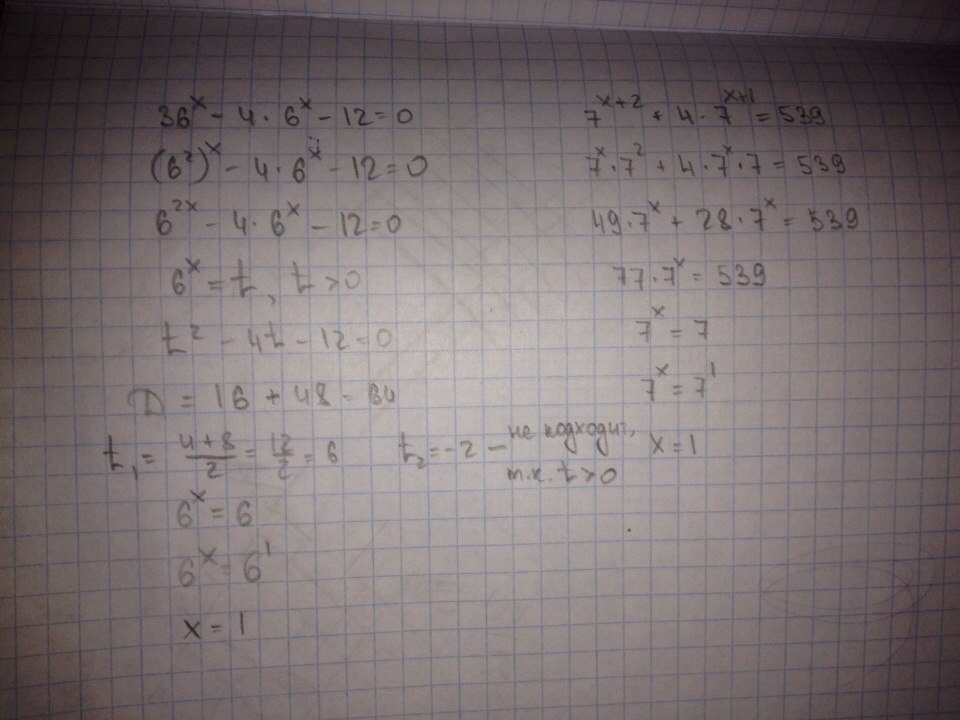 36^x - 4 · 6^x - 12 = 0
(6^2)^x - 4 · 6^x - 12 = 0
6^2x - 4 · 6^x - 12 = 0
6^x = t, t > 0
t^2 - 4t - 12 = 0
D = 16 + 48 = 64
t_1 = (4 + 8)/2 = 12/2 = 6 t_2 = -2 – не подходит,
т.к. t > 0
6^x = 6
6^x = 6^1
x = 1
7^x+2 + 4 · 7^x+1 = 539
7^x · 7^2 + 4 · 7^x · 7 = 539
49 · 7^x + 28 · 7^x = 539
77 · 7^x = 539
7^x = 7
7^x = 7^1
x = 1